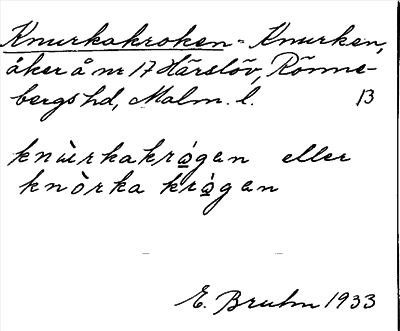 Knurkakroken = Knurken,
åker å nr 17 Härslöv, Rönne-
bergs hd, Malm. l. 13
knùrkakrǫ́gan eller
knòrka krǫ́gan
E. Bruhn 1933